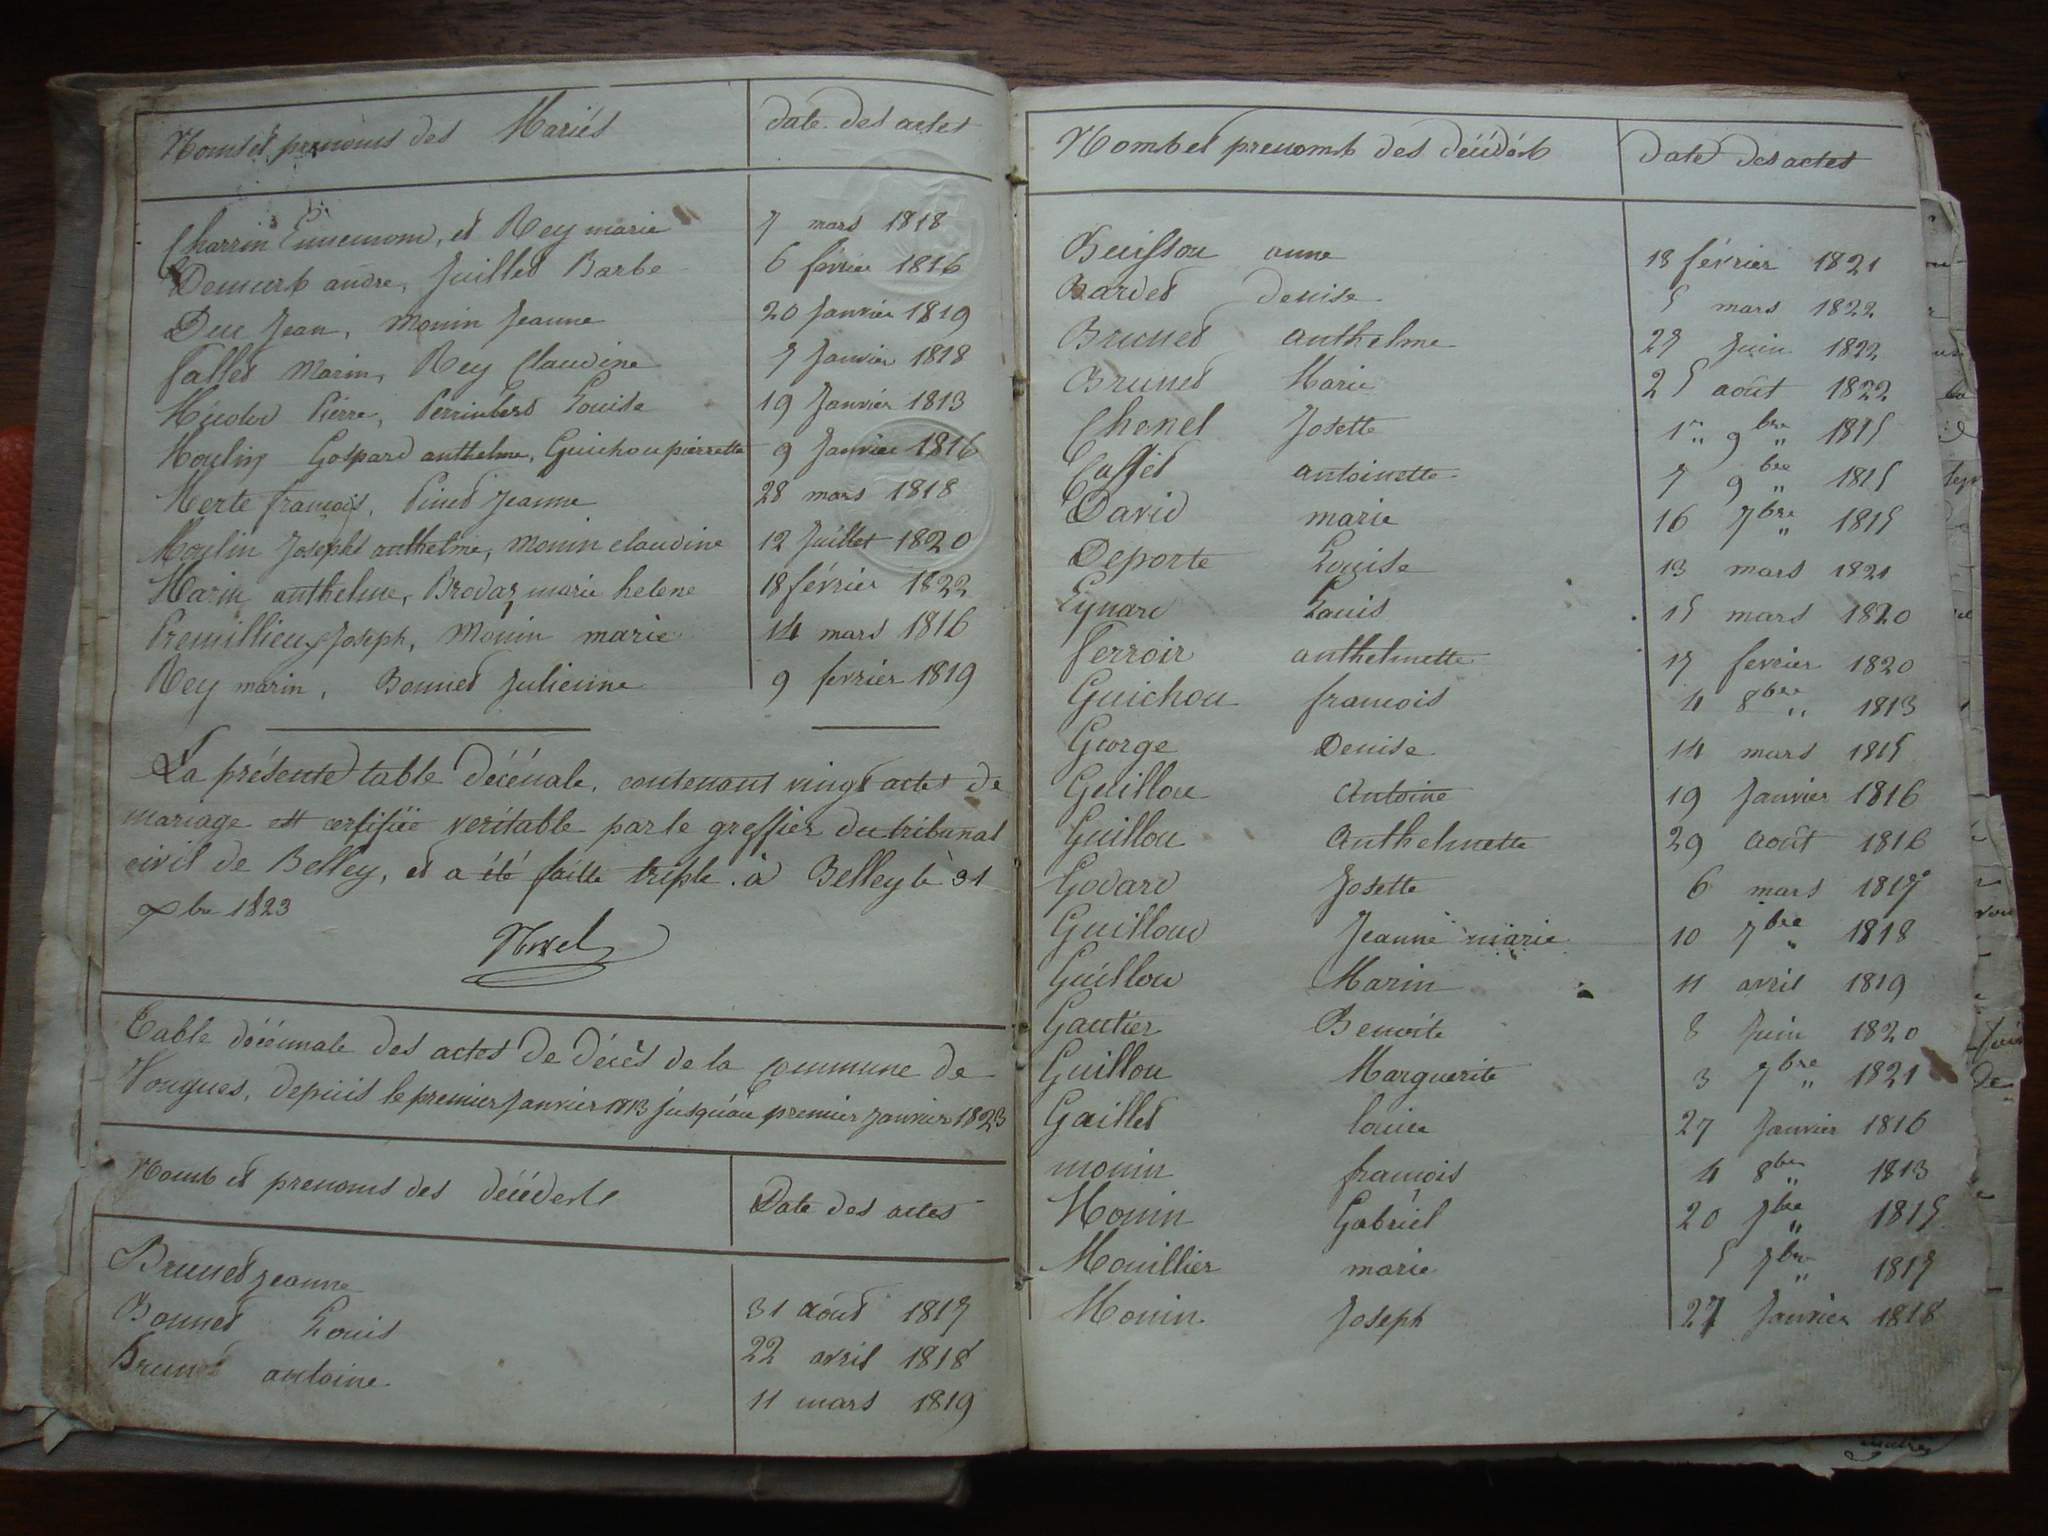 Noms et prenoms des Mariés date des actes
Charrin Ennemond, et Rey marie 7 mars 1818
Demurs andre, Juillet Barbe 6 fevrier 1816
Duc Jean, Monin Jeanne 20 Janvier 1819
fallet Marin, Rey Claudine 7 Janvier 1818
Pierre, Louise 19 Janvier 1813
Moulin Gaspard anthelme, Guichou pierrette 9 Janvier 1816
Merle francois, Pinet Jeanne 28 mars 1818
Moulin Joseph anthelme, Monin claudine 12 Juillet 1820
Marin anthelme, Brovaz marie helene 18 février 1822
Premillieux Joseph, Monin marie 14 mars 1816
Rey marin, Bonnet Julienne 9 fevrier 1819
La présente table décénale, contenant vingt actes de
mariage est certifiée veritable par le greffier du tribunal
civil de Belley, et a été faitte triple. à Belley le 31
Xbre 1823
Table décennale des actes de décès de la commune de
Vongnes, depuis le premier Janvier 1813 jusqu'au premier Janvier 1823
Noms et prenoms des décédés Date des actes
Brunet jeanne 31 aout 1817
Bonnet Louis 22 avril 1818
Brunet antoine 11 mars 1819
Noms et prenoms des décédés date des actes
Buisson anne 18 février 1821
Bardet denise 5 mars 1822
Brunet anthelme 27 Juin 1822
Brunet Marie 25 août 1822
Chenel Josette 1er 9bre 1815
Caffet antoinette 7 9bre 1815
David marie 16 7bre 1815
Deporte Louise 13 mars 1821
Eynard Louis 15 mars 1820
ferroir anthelmette 17 fevrier 1820
Guichou francois 4 8bre 1813
George Denise 14 mars 1815
Guillou Antoine 19 Janvier 1816
Guillou Anthelmette 29 août 1816
Godard Josette 6 mars 1817
Guilloud Jeanne marie 10 7bre 1818
Guillou Marin 11 avril 1819
Gautier Benoite 8 Juin 1820
Guillou Marguerite 3 7bre 1821
Gaillet louise 27 Janvier 1816
monin francois 4 8bre 1813
Monin Gabriel 20 7bre 1815
Mouillier marie 5 7bre 1817
Monin Joseph 27 Janvier 1818